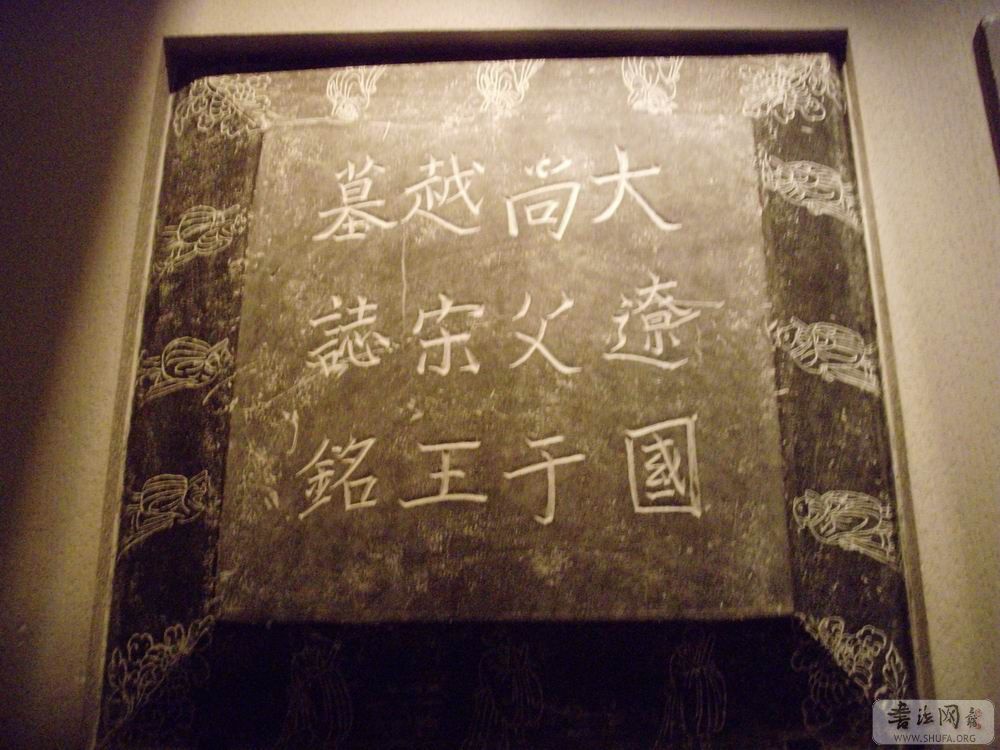 大遼國
尚父于
越宋王
墓誌銘
书法网
WWW.SHUFA.ORG